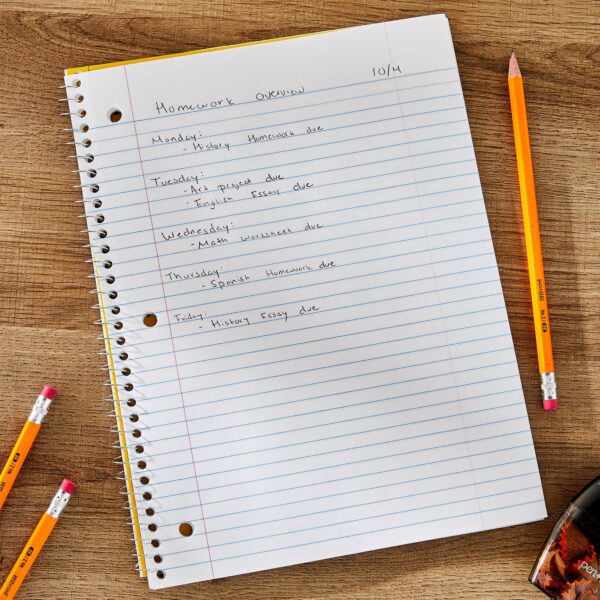 10/4
Homework Overview
Monday:
- History Homework due
Tuesday:
- Art project due
- English Essay due
Wednesday:
- Math worksheet due
Thursday:
- Spanish Homework due
Friday:
- History Essay due
pen+gear
No.2/HB